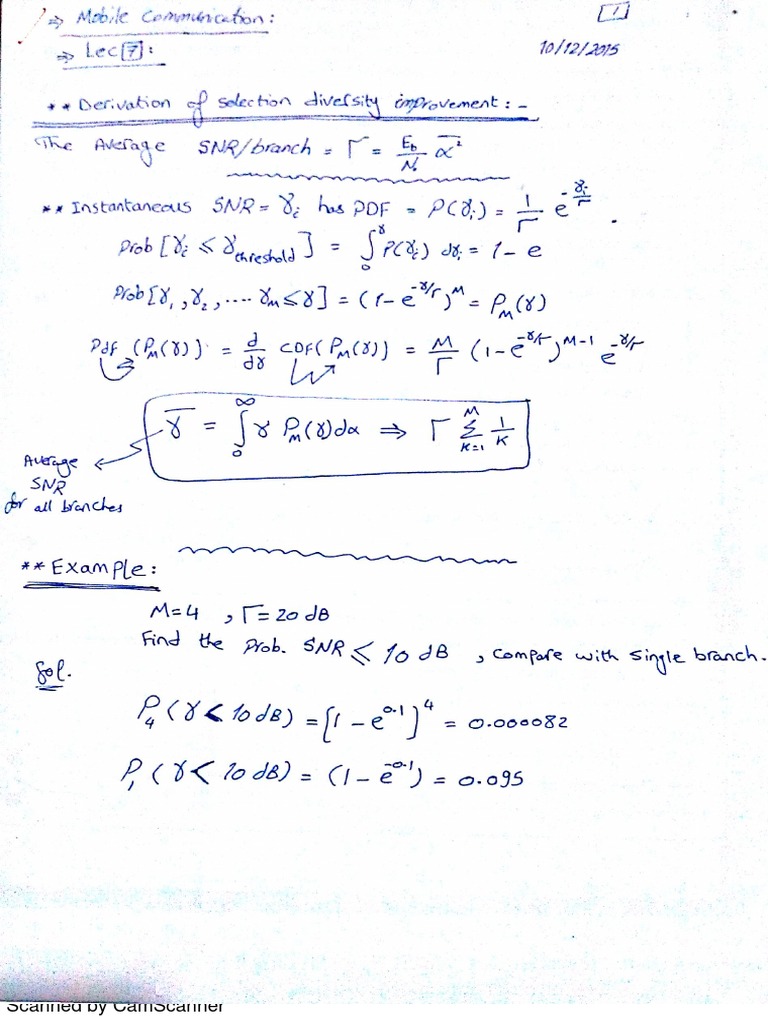 ⇒ Mobile Communication:
1
⇒ Lec 7:
10/12/2015
** Derivation of selection diversity improvement: -
The Average SNR/branch = Γ = Eb/N₀ α̅²
** Instantaneous SNR = γi has PDF = P(γi) = 1/Γ e^(-γi/Γ) .
Prob [γi ≤ γthreshold] = ∫₀^γ P(γi) dγi = 1 - e
Prob [γ1, γ2, .... γM ≤ γ] = (1 - e^(-γ/Γ))^M = PM(γ)
Pdf (PM(γ)) = d/dγ CDF(PM(γ)) = M/Γ (1 - e^(-γ/Γ))^(M-1) e^(-γ/Γ)
γ̅ = ∫₀^∞ γ PM(γ)dα ⇒ Γ Σ_(K=1)^M 1/K
Average
SNR
for all branches
** Example:
M=4 , Γ= 20 dB
Find the Prob. SNR ≤ 10 dB , compare with single branch.
Sol.
P4 (γ < 10 dB) = [1 - e^(0.1)]^4 = 0.000082
P1 (γ < 10 dB) = (1 - e^(-0.1)) = 0.095
Scanned by CamScanner